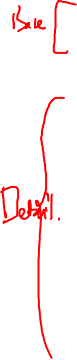 Base
Detail.